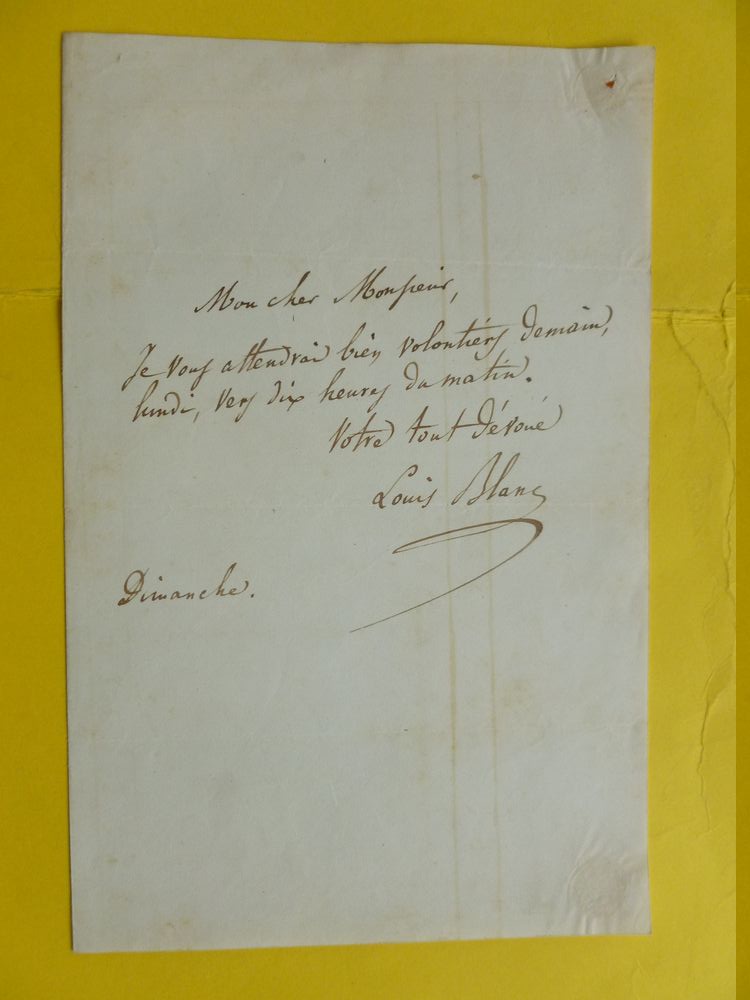 Mon cher Monsieur,
Je vous attendrai bien volontiers demain,
lundi, vers dix heures du matin.
Votre tout dévoué
Louis Blanc
Dimanche.